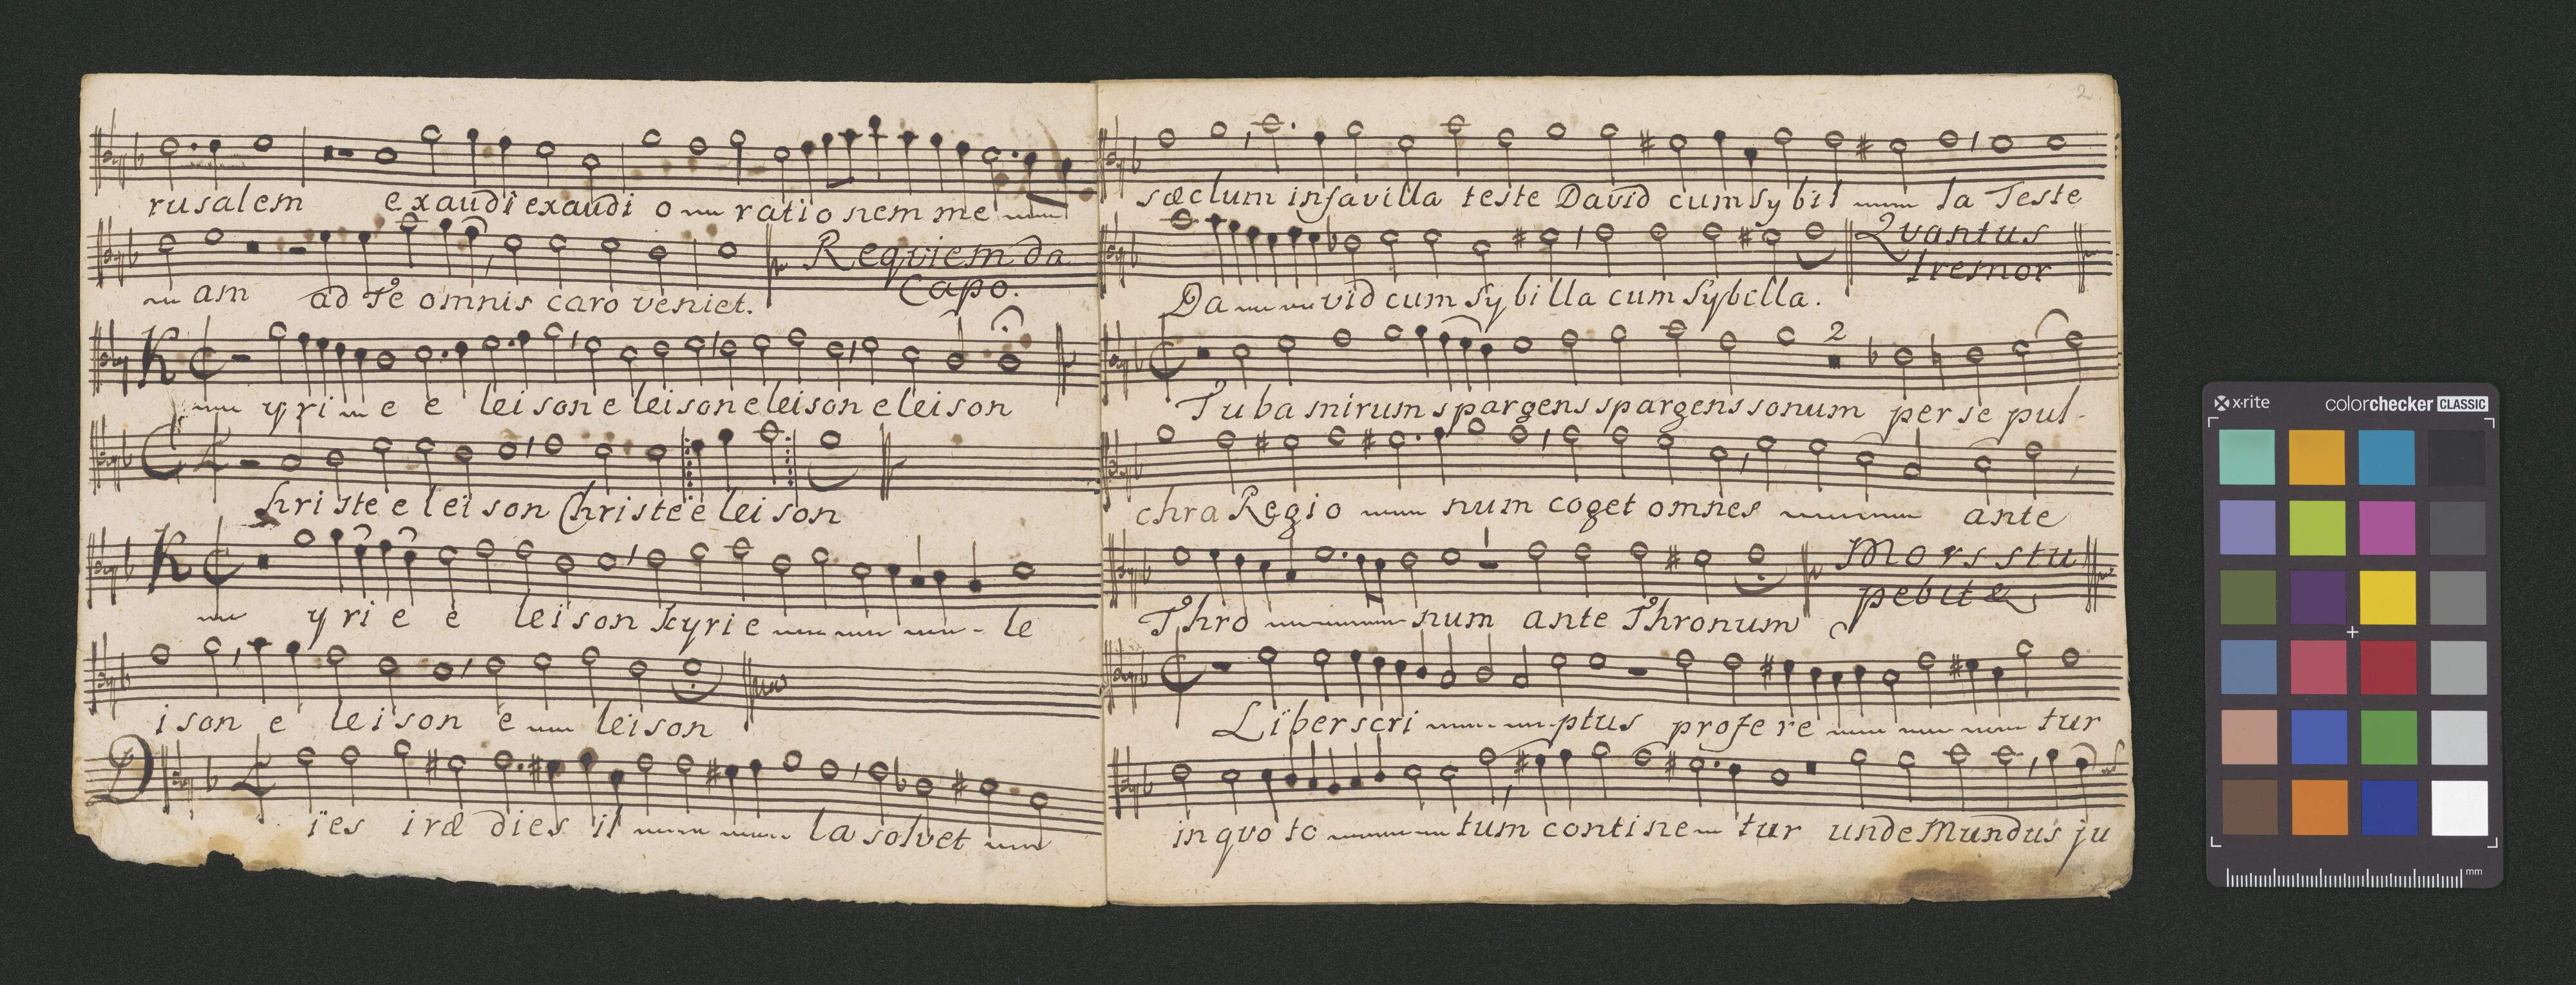 rusalem exaudi exaudi o rationem me
am ad Te omnis caro veniet. Requiem da Capo.
K yri e e leison eleison eleison eleison
Christe eleison Christe eleison
K yri e e leison kyrie le
ison e leison e leison
Dies iræ dies il la solvet
2
sæclum infavilla teste David cum sy bil la Teste
Da vid cum sy billa cum Sybilla. Quantus tremor
2
Tuba mirum spargens spargens sonum per se pul-
chra Regio num coget omnes ante
Thro num ante Thronum Mors stu pebit &
Liber scri ptus profe re tur
in quo to tum contine tur unde Mundus ju
x-rite colorchecker CLASSIC
mm